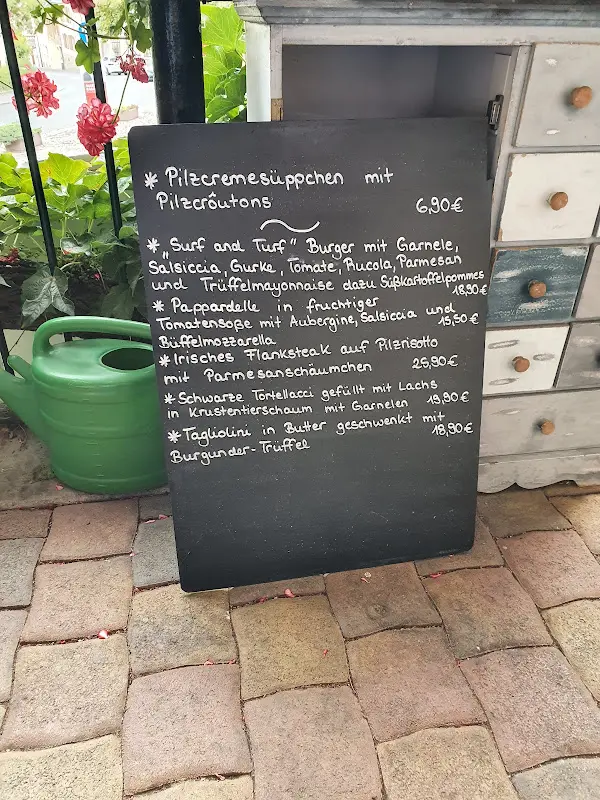 * Pilzcremesüppchen mit
Pilzcrôutons 6,90€
* „Surf and Turf" Burger mit Garnele,
Salsiccia, Gurke, Tomate, Rucola, Parmesan
und Trüffelmayonnaise dazu Süßkartoffelpommes
18,90€
* Pappardelle in fruchtiger
Tomatensoße mit Aubergine, Salsiccia und
Büffelmozzarella 15,50€
* Irisches Flanksteak auf Pilzrisotto
mit Parmesanschäumchen 25,90€
* Schwarze Tortellacci gefüllt mit Lachs
in Krustentierschaum mit Garnelen 19,90€
* Tagliolini in Butter geschwenkt mit
Burgunder-Trüffel 18,90€